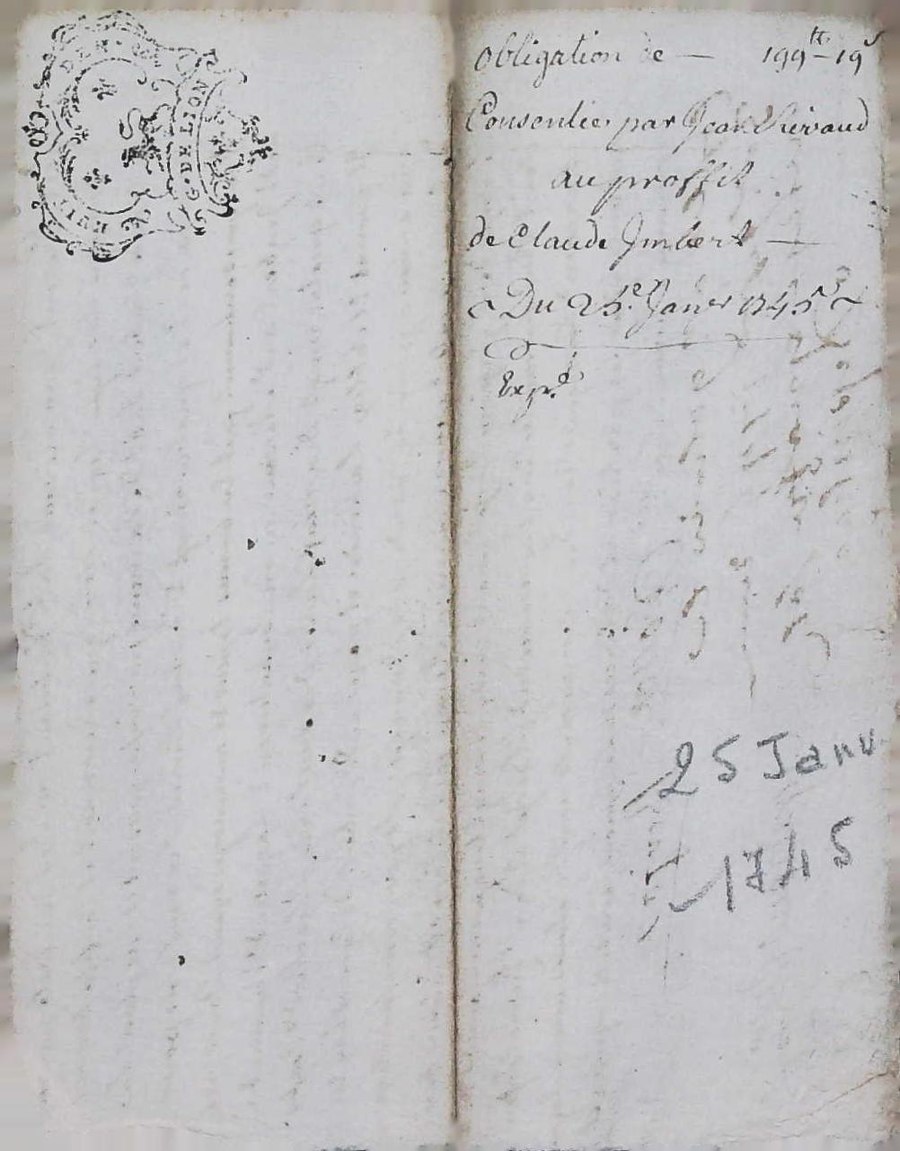 G. DE LION
HUIT
Obligation de — 199tt - 19s
Consentie par Jean
au proffit
de Claude Imbert —
Du 25e Janer 1745
Expé
25 Janv
1745